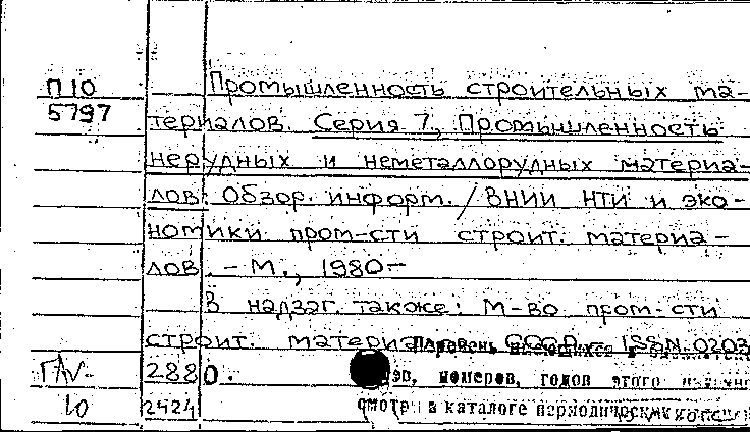 П10
5797
Промышленность строительных ма-
териалов. Серия 7, Промышленность
нерудных и неметаллорудных материа-
лов: Обзор. информ. / ВНИИ НТИ и эко-
номики пром-сти строит. материа-
лов. – М., 1980–
В надзаг. также: М-во пром-сти
строит. материалов СССР. – ISSN 0203
2880.
Перечень имеющихся в
номеров, годов этого
смотри в каталоге периодических
10
2424